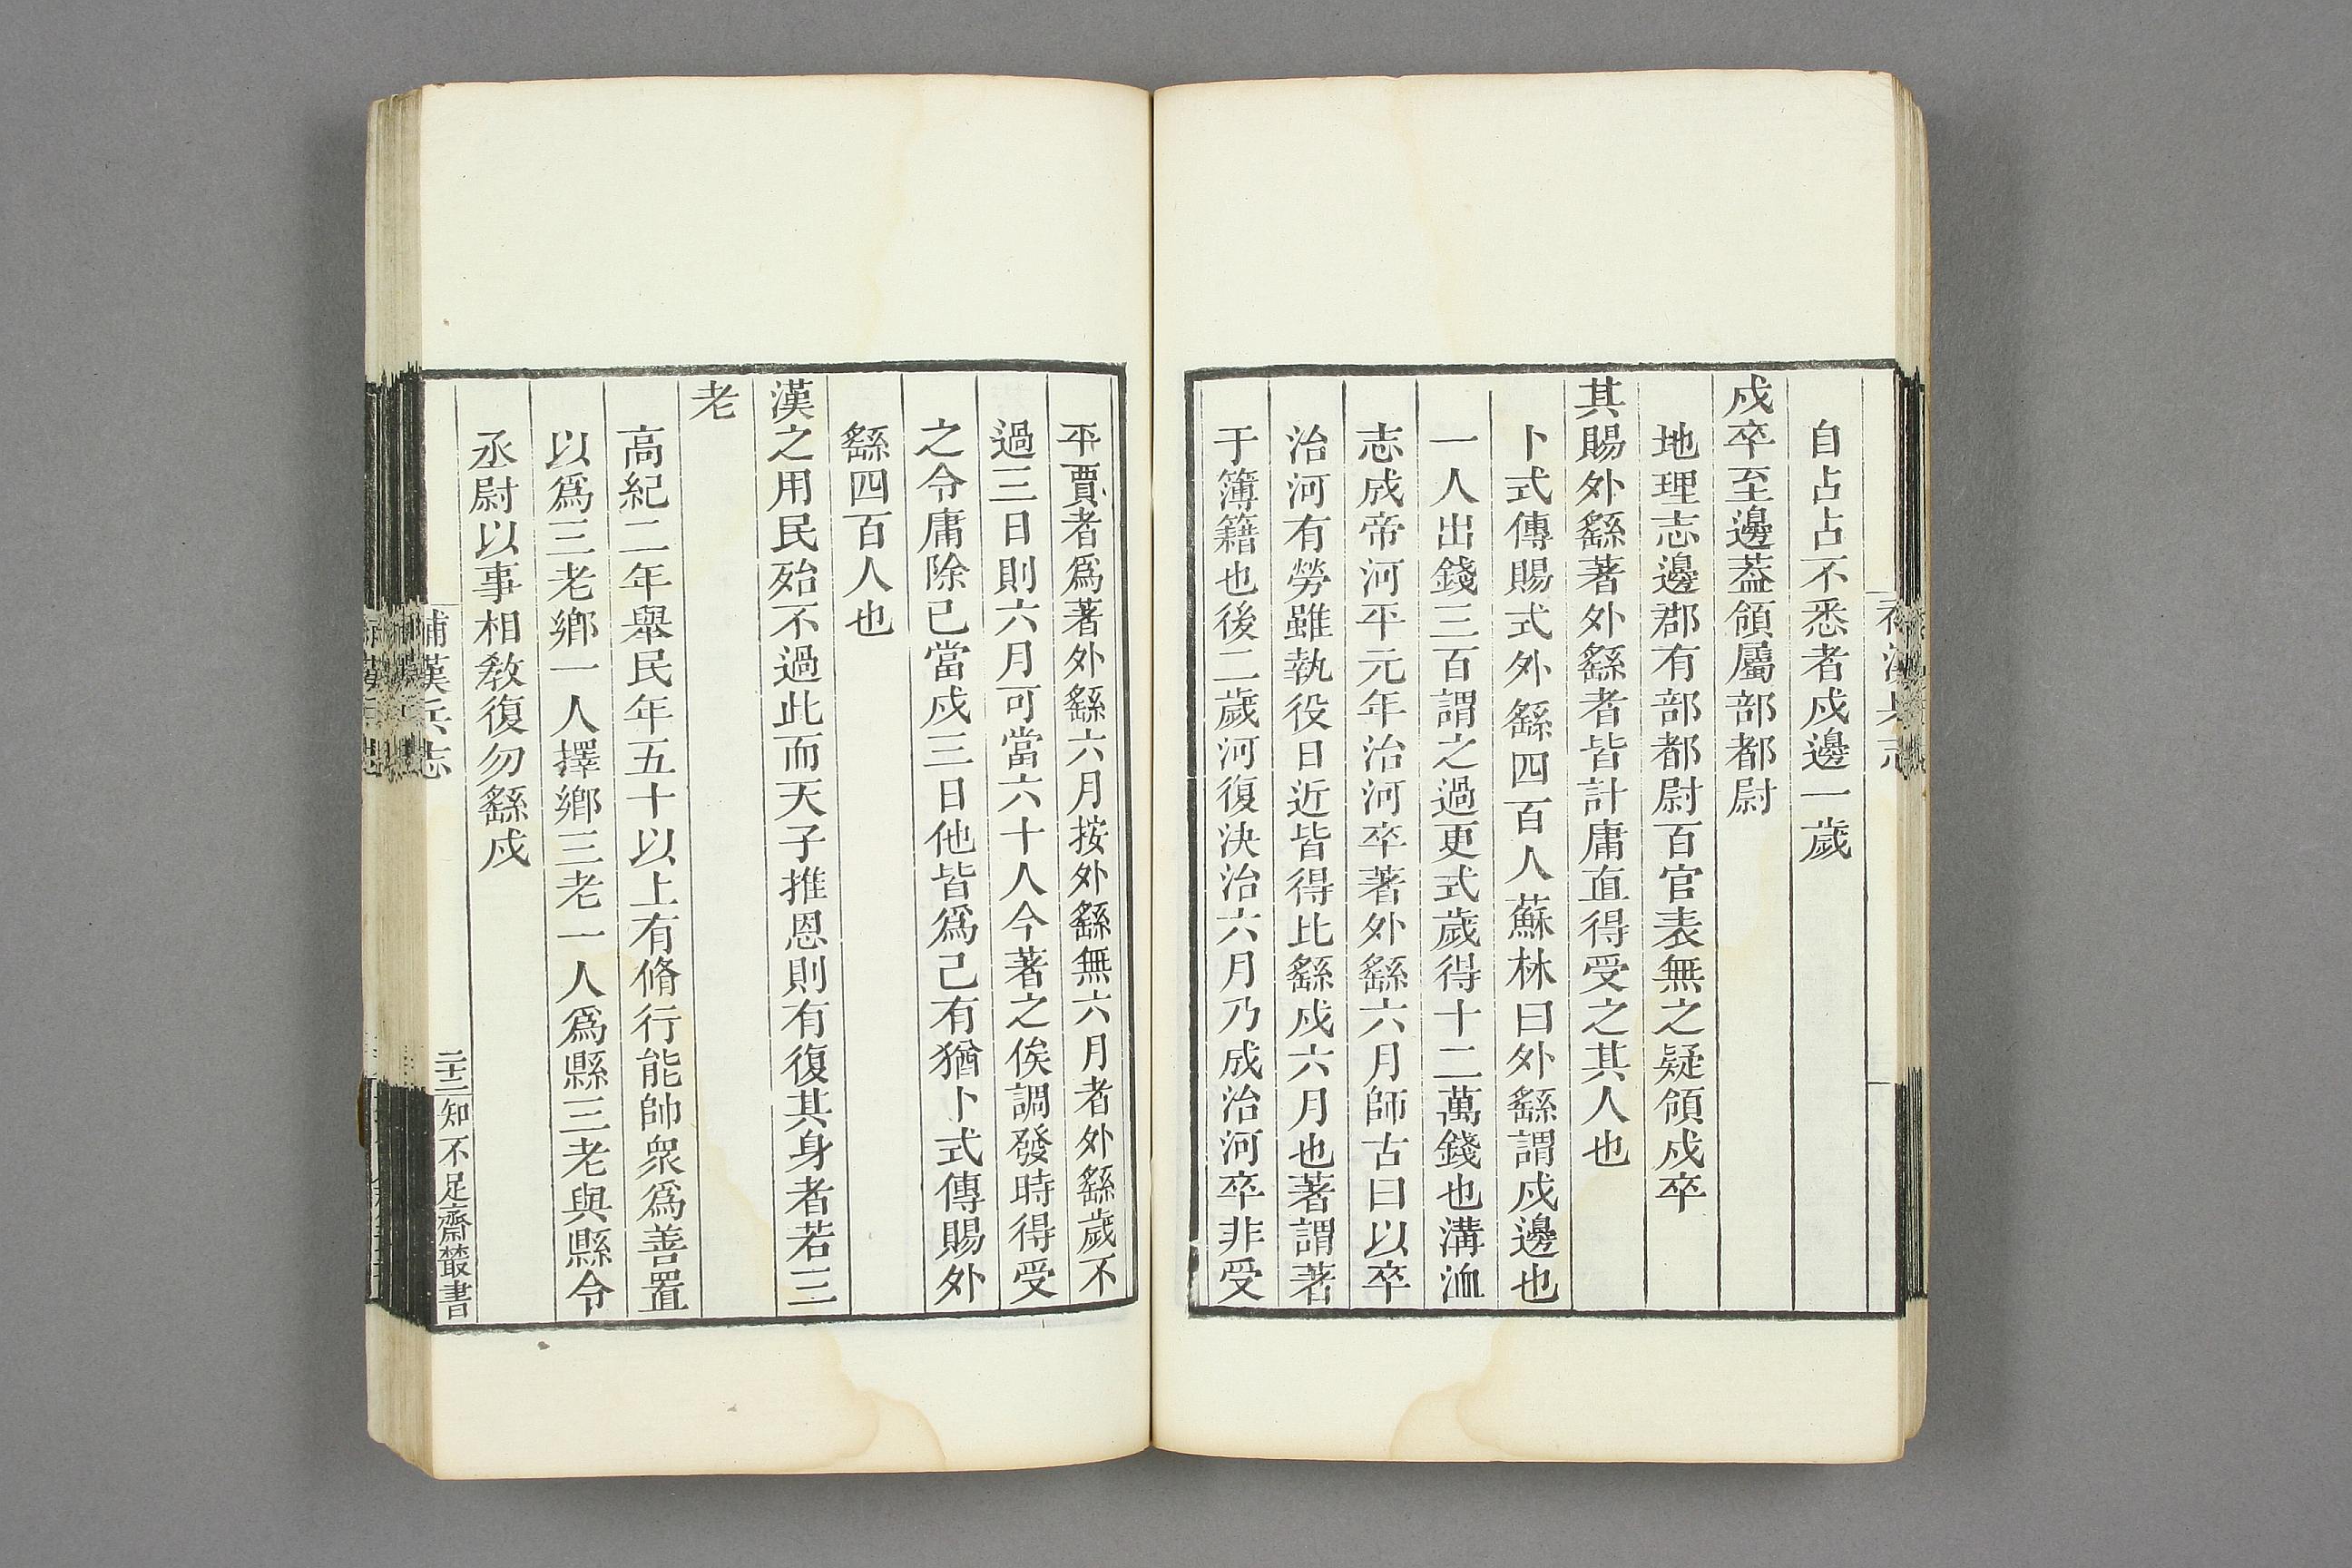 自占占不悉者戍邊一歲
戍卒至邊葢領屬部都尉
地理志邊郡有部都尉百官表無之疑領戍卒
其賜外繇著外繇者皆計庸直得受之其人也
卜式傳賜式外繇四百人蘇林曰外繇謂戍邊也
一人出錢三百謂之過更式歲得十二萬錢也溝洫
志成帝河平元年治河卒著外繇六月師古曰以卒
治河有勞雖執役日近皆得比繇戍六月也著謂著
于簿籍也後二歲河復決治六月乃成治河卒非受
平賈者爲著外繇六月按外繇無六月者外繇歲不
過三日則六月可當六十人今著之俟調發時得受
之令庸除已當戍三日他皆爲己有猶卜式傳賜外
繇四百人也
漢之用民殆不過此而天子推恩則有復其身者若三
老
高紀二年舉民年五十以上有脩行能帥衆爲善置
以爲三老鄉一人擇鄉三老一人爲縣三老與縣令
丞尉以事相敎復勿繇戍
補漢兵志
二十二
知不足齋叢書